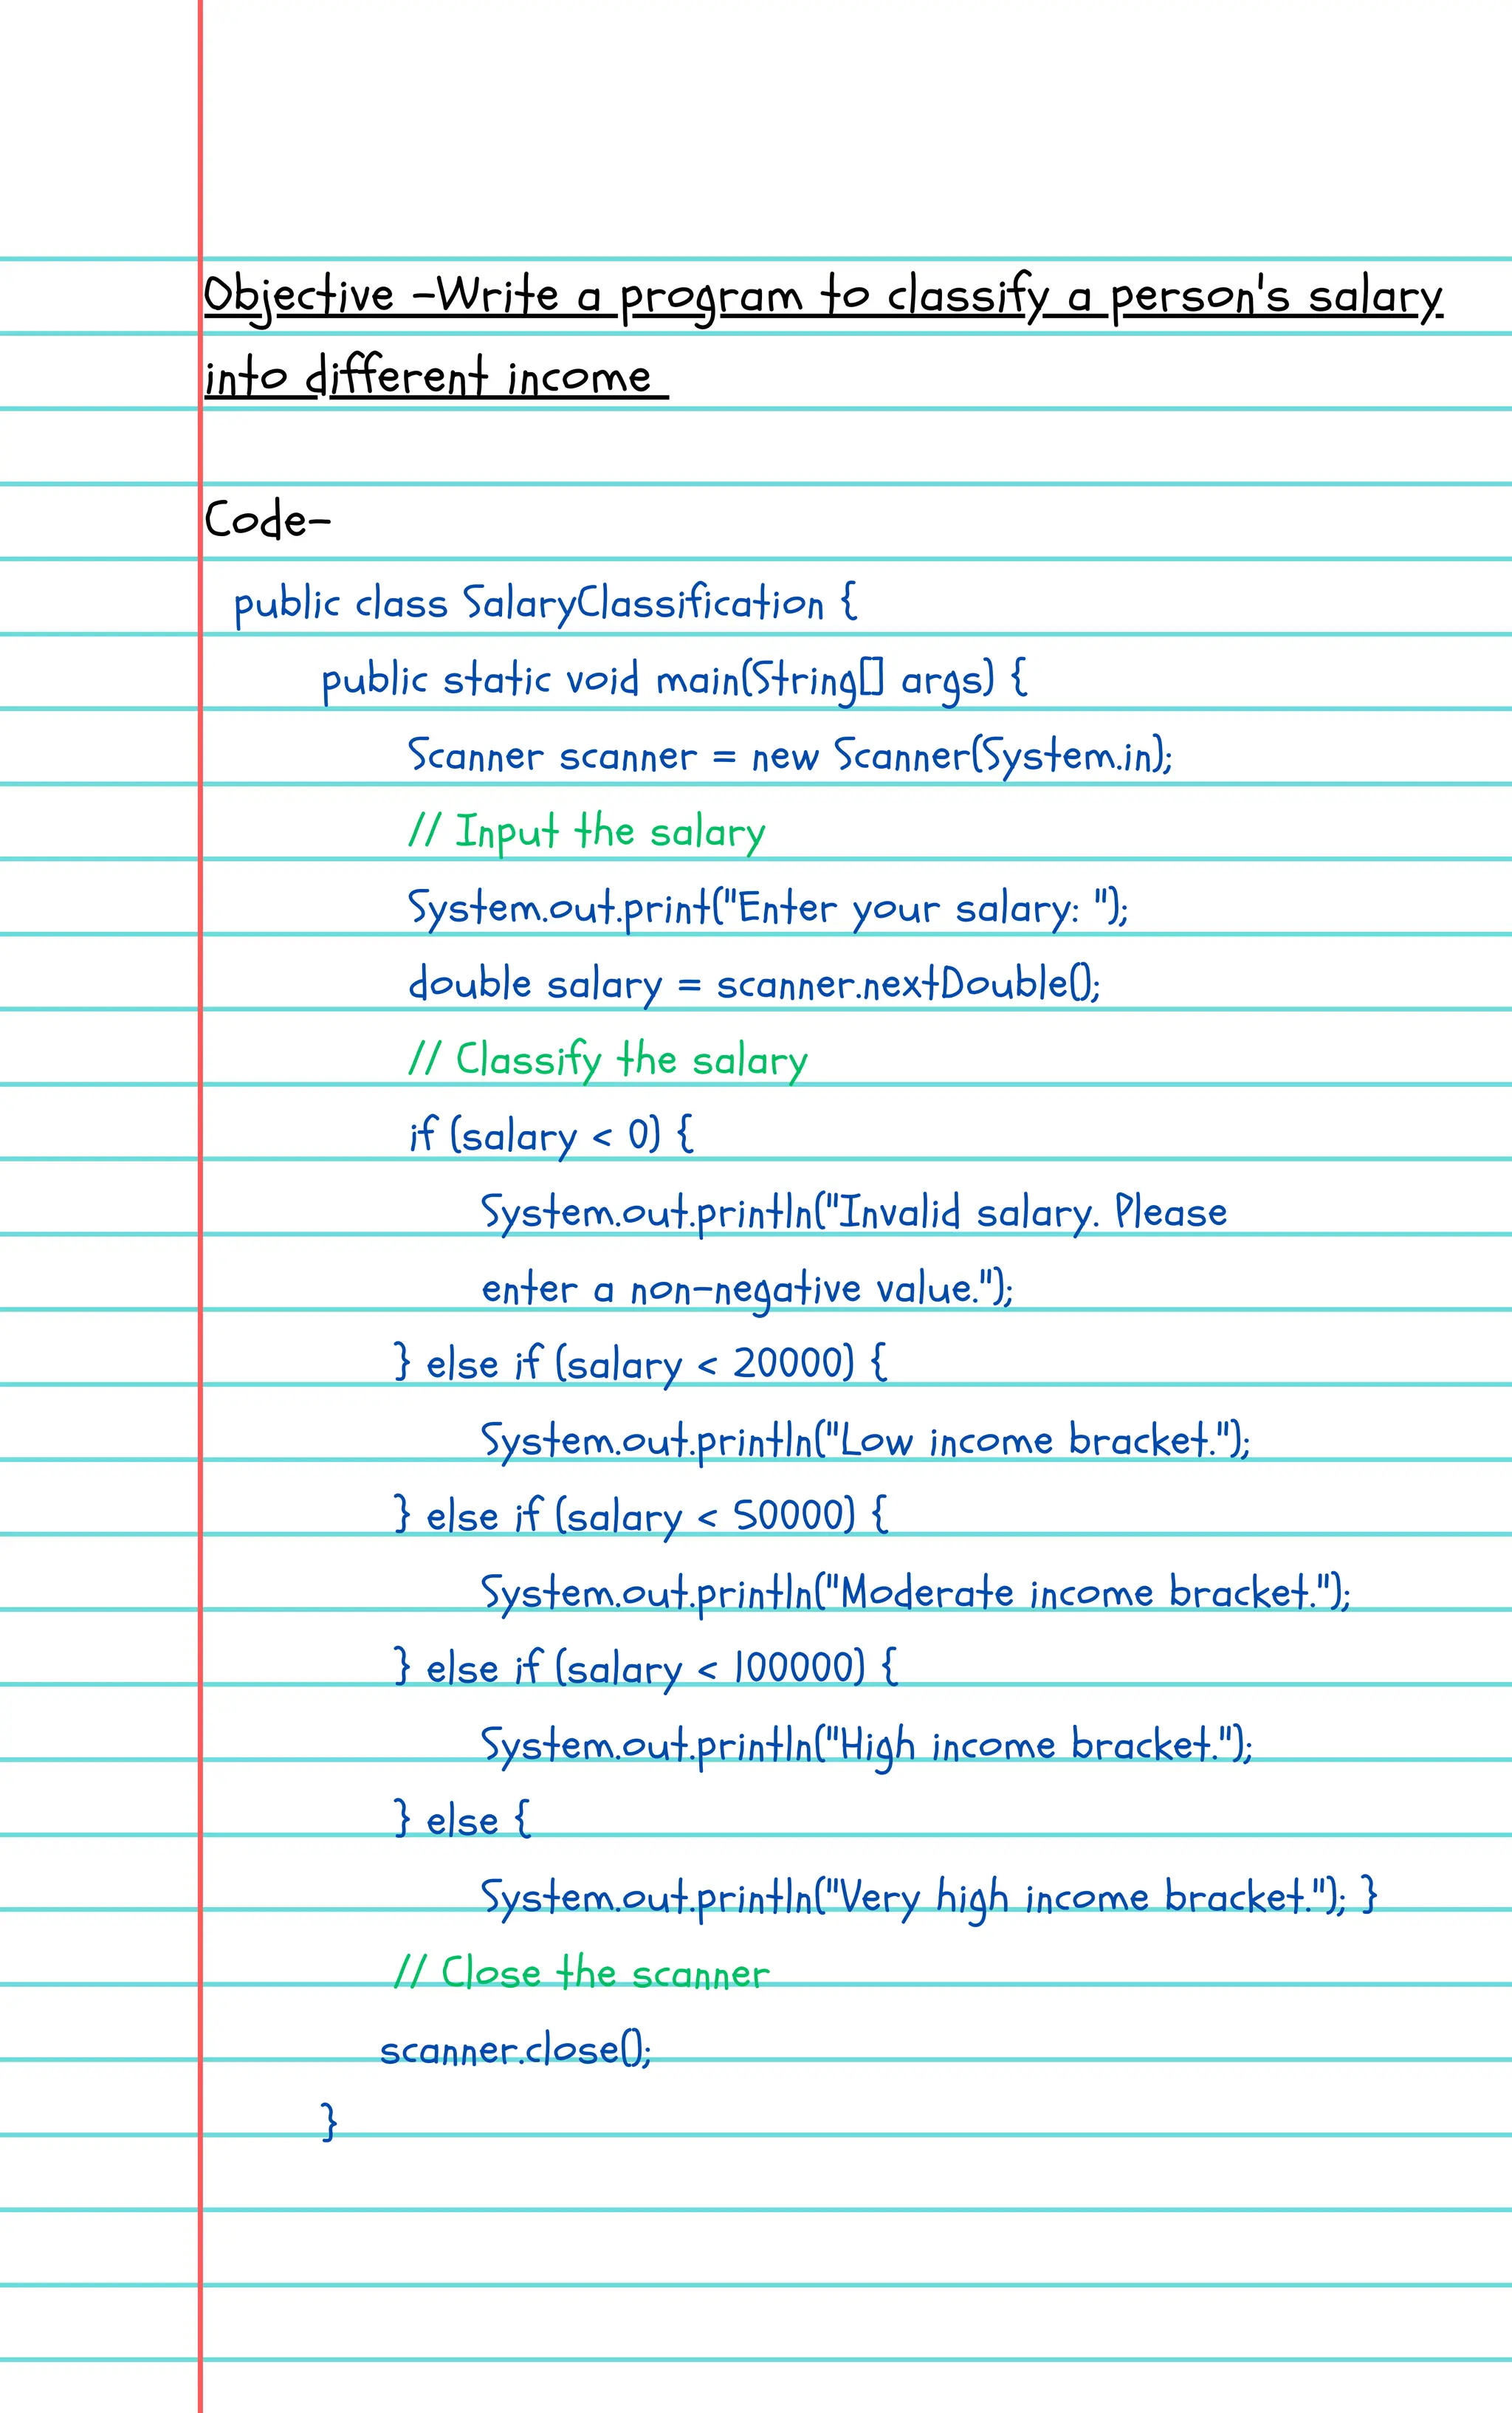 Objective -Write a program to classify a person's salary
into different income
Code-
public class SalaryClassification {
public static void main(String[] args) {
Scanner scanner = new Scanner(System.in);
// Input the salary
System.out.print("Enter your salary: ");
double salary = scanner.nextDouble();
// Classify the salary
if (salary < 0) {
System.out.println("Invalid salary. Please
enter a non-negative value.");
} else if (salary < 20000) {
System.out.println("Low income bracket.");
} else if (salary < 50000) {
System.out.println("Moderate income bracket.");
} else if (salary < 100000) {
System.out.println("High income bracket.");
} else {
System.out.println("Very high income bracket."); }
// Close the scanner
scanner.close();
}